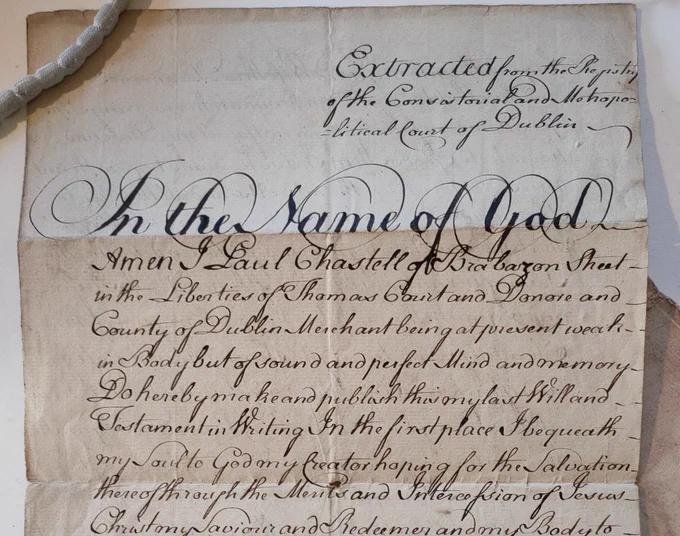 Extracted from the Registry
of the Consistorial and Metropo-
-litical Court of Dublin
In the Name of God
Amen I Paul Chastell of Brabazon Street
in the Liberties of Thomas Court and Donore and
County of Dublin Merchant being at present weak
in Body but of sound and perfect Mind and memory
Do hereby make and publish this my last Will and
Testament in Writing In the first place I bequeath
my Soul to God my Creator hoping for the Salvation
thereof through the Merits and Intercession of Jesus
Christ my Saviour and Redeemer and my Body to